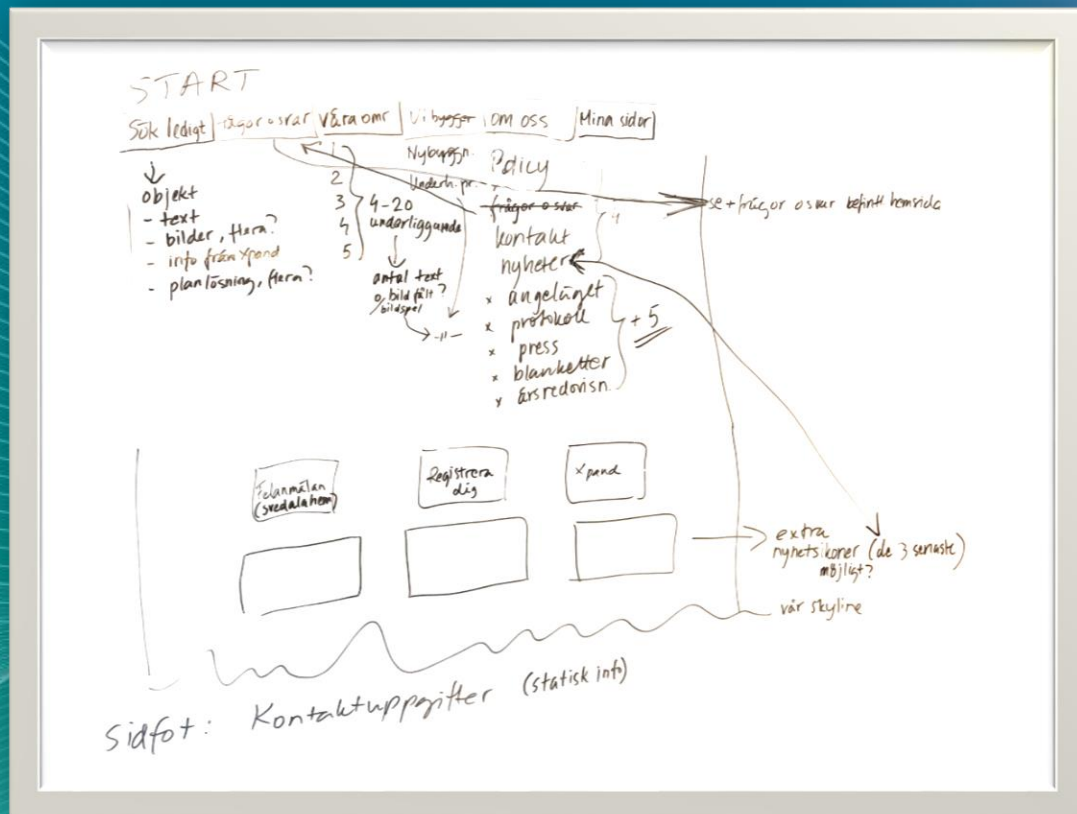 START
Sök ledigt
Frågor o svar
Våra omr
Vi bygger
om oss
Mina sidor
objekt
- text
- bilder, flera?
- info från Xpand
- planlösning, flera?
1
2
3
4
5
4-20
underliggande
antal text
o bild fält?
/bildspel
-"-
Nybyggn.
Underh.pr.
Policy
frågor o svar
kontakt
nyheter
x angeläget
x protokoll
x press
x blanketter
x årsredovisn.
+ 5
se + frågor o svar befintl hemsida
Felanmälan
(svedalahem)
Registrera
dig
Xpand
extra
nyhetsikoner (de 3 senaste)
möjligt?
vår skyline
Sidfot: Kontaktuppgifter (statisk info)